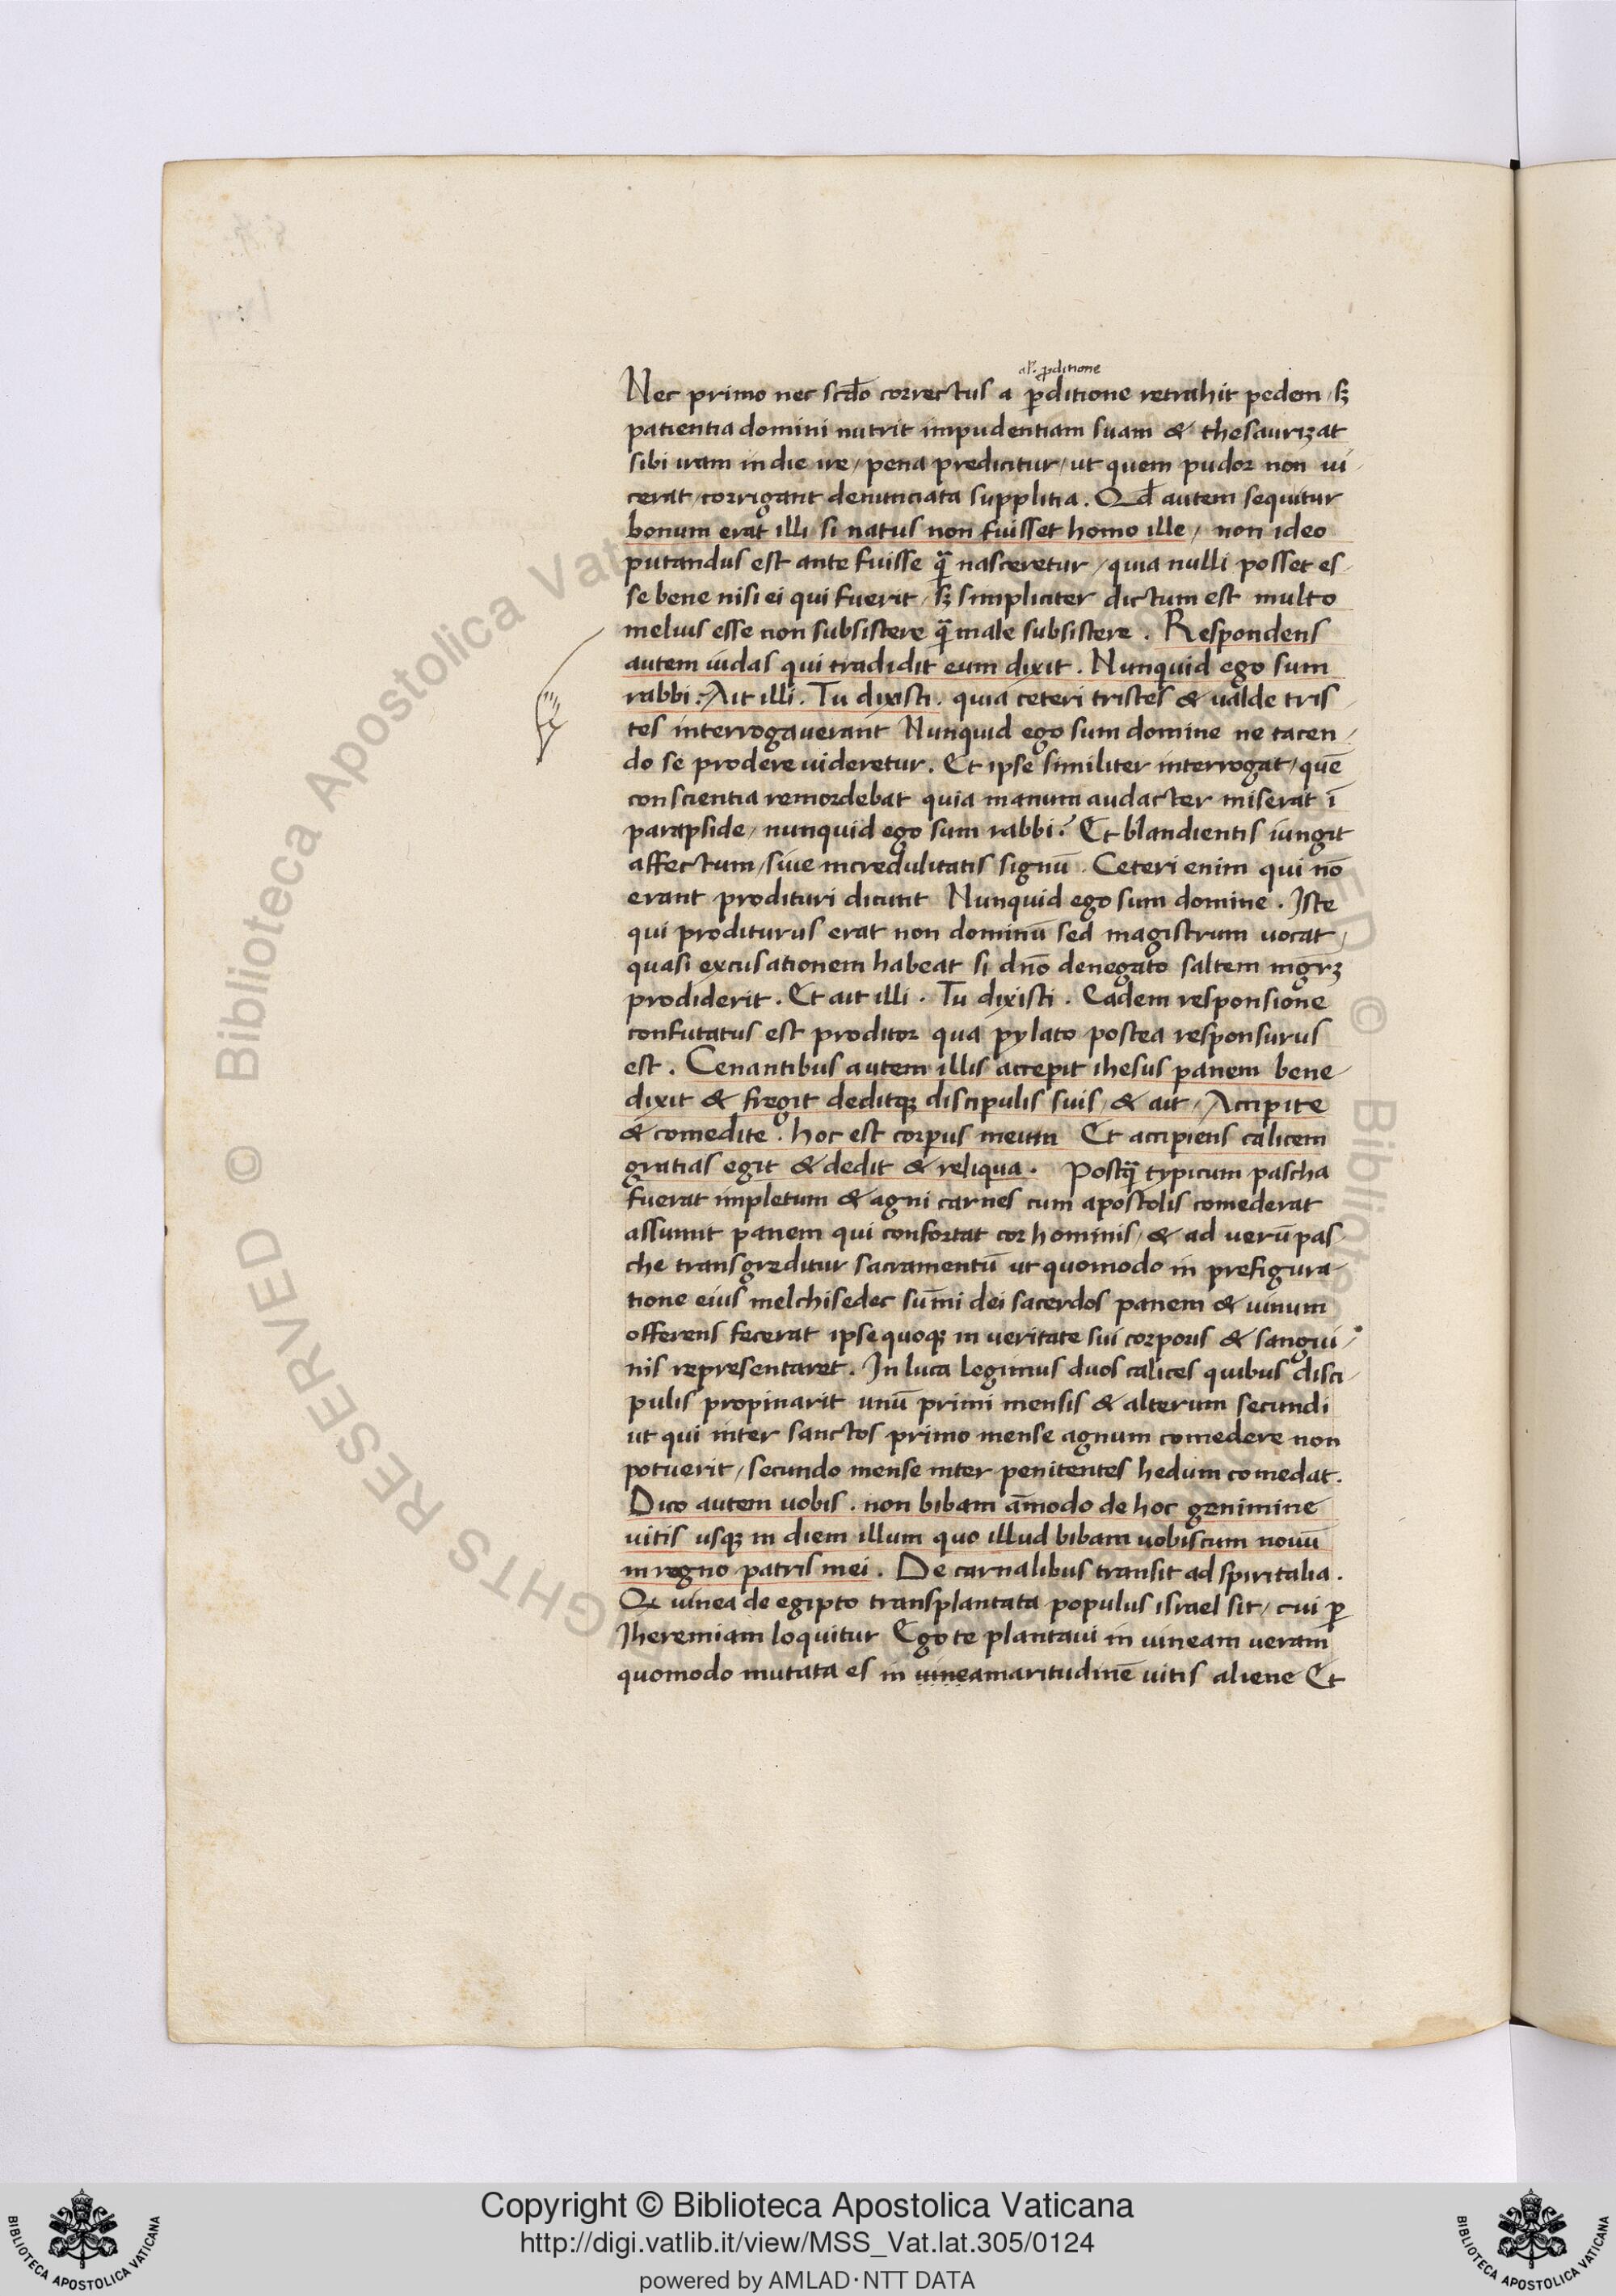 al'. ꝓditione
Nec primo nec scdo correctus a ꝑditione retrahit pedem / sꝫ
patientia domini nutrit impudentiam suam & thesaurizat
sibi iram in die ire / pena predicitur / ut quem pudor non ui /
cerat / corrigant denunciata supplitia . Qd autem sequitur
bonum erat illi si natus non fuisset homo ille / non ideo
putandus est ante fuisse q̃ nasceretur / quia nulli posset es /
se bene nisi ei qui fuerit / sꝫ simpliciter dictum est multo
melius esse non subsistere q̃ male subsistere . Respondens
autem iudas qui tradidit eum dixit . Nunquid ego sum
rabbi : Ait illi . Tu dixisti . quia ceteri tristes & ualde tris /
tes interrogauerant Nunquid ego sum domine ne tacen /
do se prodere uideretur . Et ipse similiter interrogat / quē
conscientia remordebat quia manum audacter miserat ī
parapside / nunquid ego sum rabbi ? Et blandientis iungit
affectum / siue incredulitatis signū . Ceteri enim qui nō
erant prodituri dicunt Nunquid ego sum domine . Iste
qui proditurus erat non dominū sed magistrum uocat /
quasi excusationem habeat si dnō denegato saltem mgrꝫ
prodiderit . Et ait illi . Tu dixisti . Eadem responsione
confutatus est proditor qua pylato postea responsurus
est . Cenantibus autem illis accepit ihesus panem bene /
dixit & fregit deditqꝫ discipulis suis / & ait / Accipite
& comedite . hoc est corpus meum Et accipiens calicem
gratias egit & dedit & reliqua . Postq̃ typicum pascha
fuerat impletum & agni carnes cum apostolis comederat
assumit panem qui confortat cor hominis / & ad uerū pas
che transgreditur sacramentū ut quomodo in prefigura /
tione eius melchisedec sūmi dei sacerdos panem & uinum
offerens fecerat ipse quoqꝫ in ueritate sui corporis & sangui /
nis representaret . In luca legimus duos calices quibus disci /
pulis propinarit unū primi mensis & alterum secundi
ut qui inter sanctos primo mense agnum comedere non
potuerit / secundo mense inter penitentes hedum comedat .
Dico autem uobis . non bibam āmodo de hoc genimine
uitis usqꝫ in diem illum quo illud bibam uobiscum nouū
in regno patris mei . De carnalibus transit ad spiritalia .
Qꝫ uinea de egipto transplantata populus israel sit / cui ꝑ
Iheremiam loquitur Ego te plantaui in uineam ueram
quomodo mutata es in uineamaritudinē uitis aliene Et
Copyright © Biblioteca Apostolica Vaticana
http://digi.vatlib.it/view/MSS_Vat.lat.305/0124
powered by AMLAD·NTT DATA